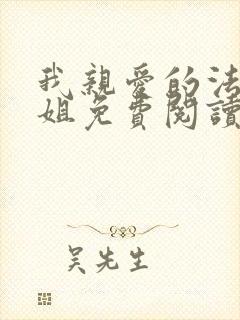 我親愛的法
姐免費閱讀
吴先生